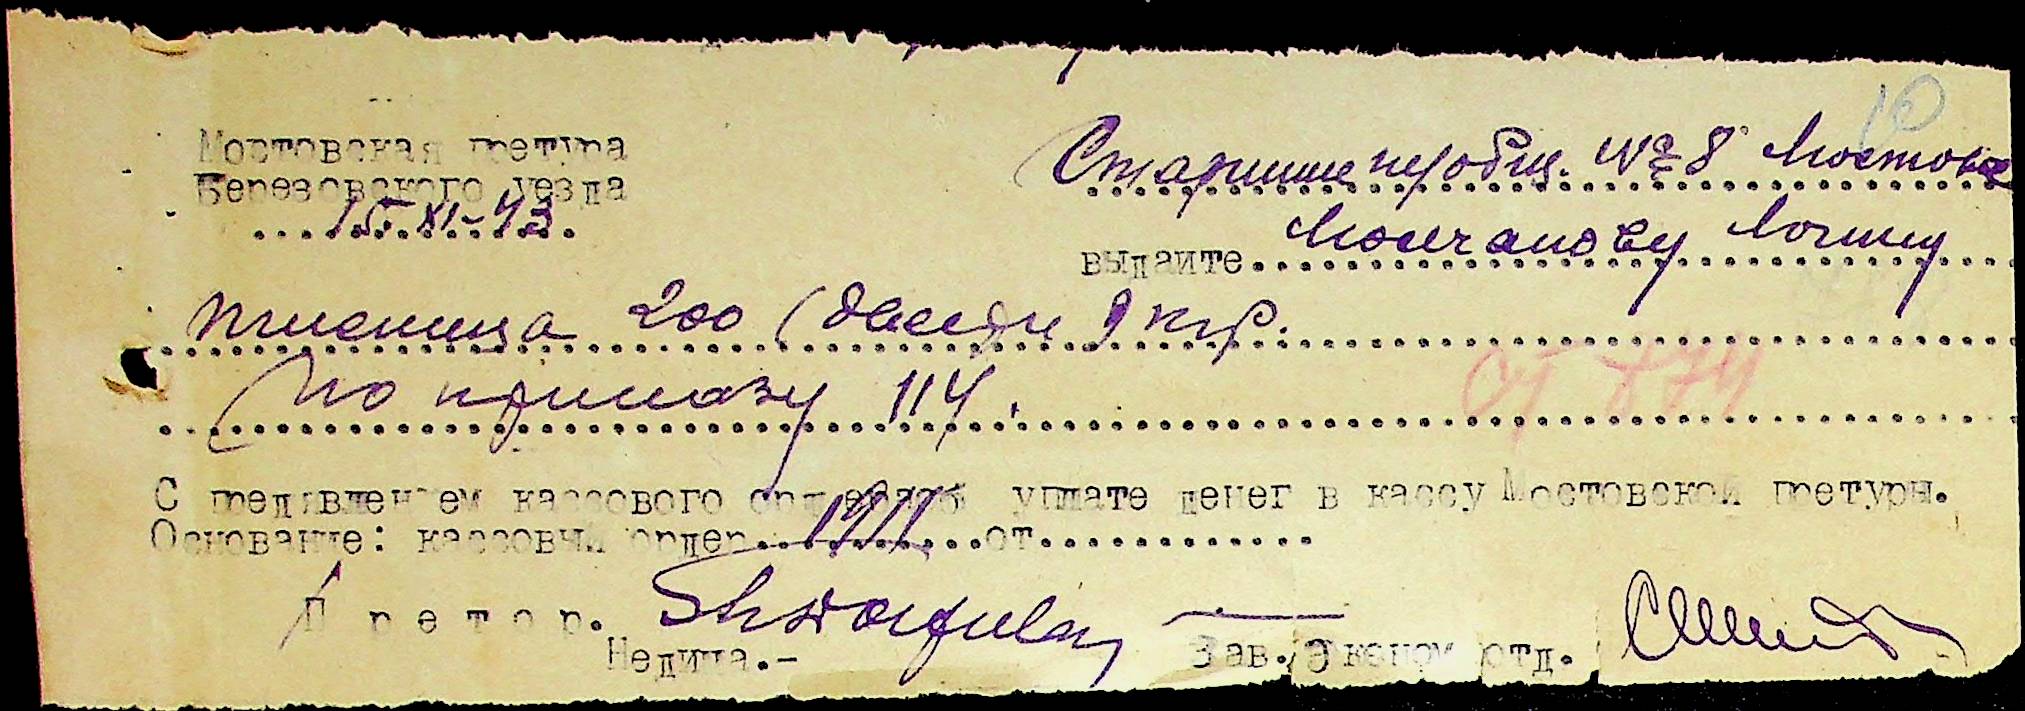 10
Мостовская претура
Старшине т общ. № 8 Мостовое
Березовского уезда
15. XI-43
выдайте Молчанову
пшеница 200 (двести) кгр.
По приказу 114.
ст 874
С предявлением кассового ордера об уплате денег в кассу Мостовской претуры.
Основание: кассовый ордер от
Претор.
Недича.- Зав. Эконом отд.